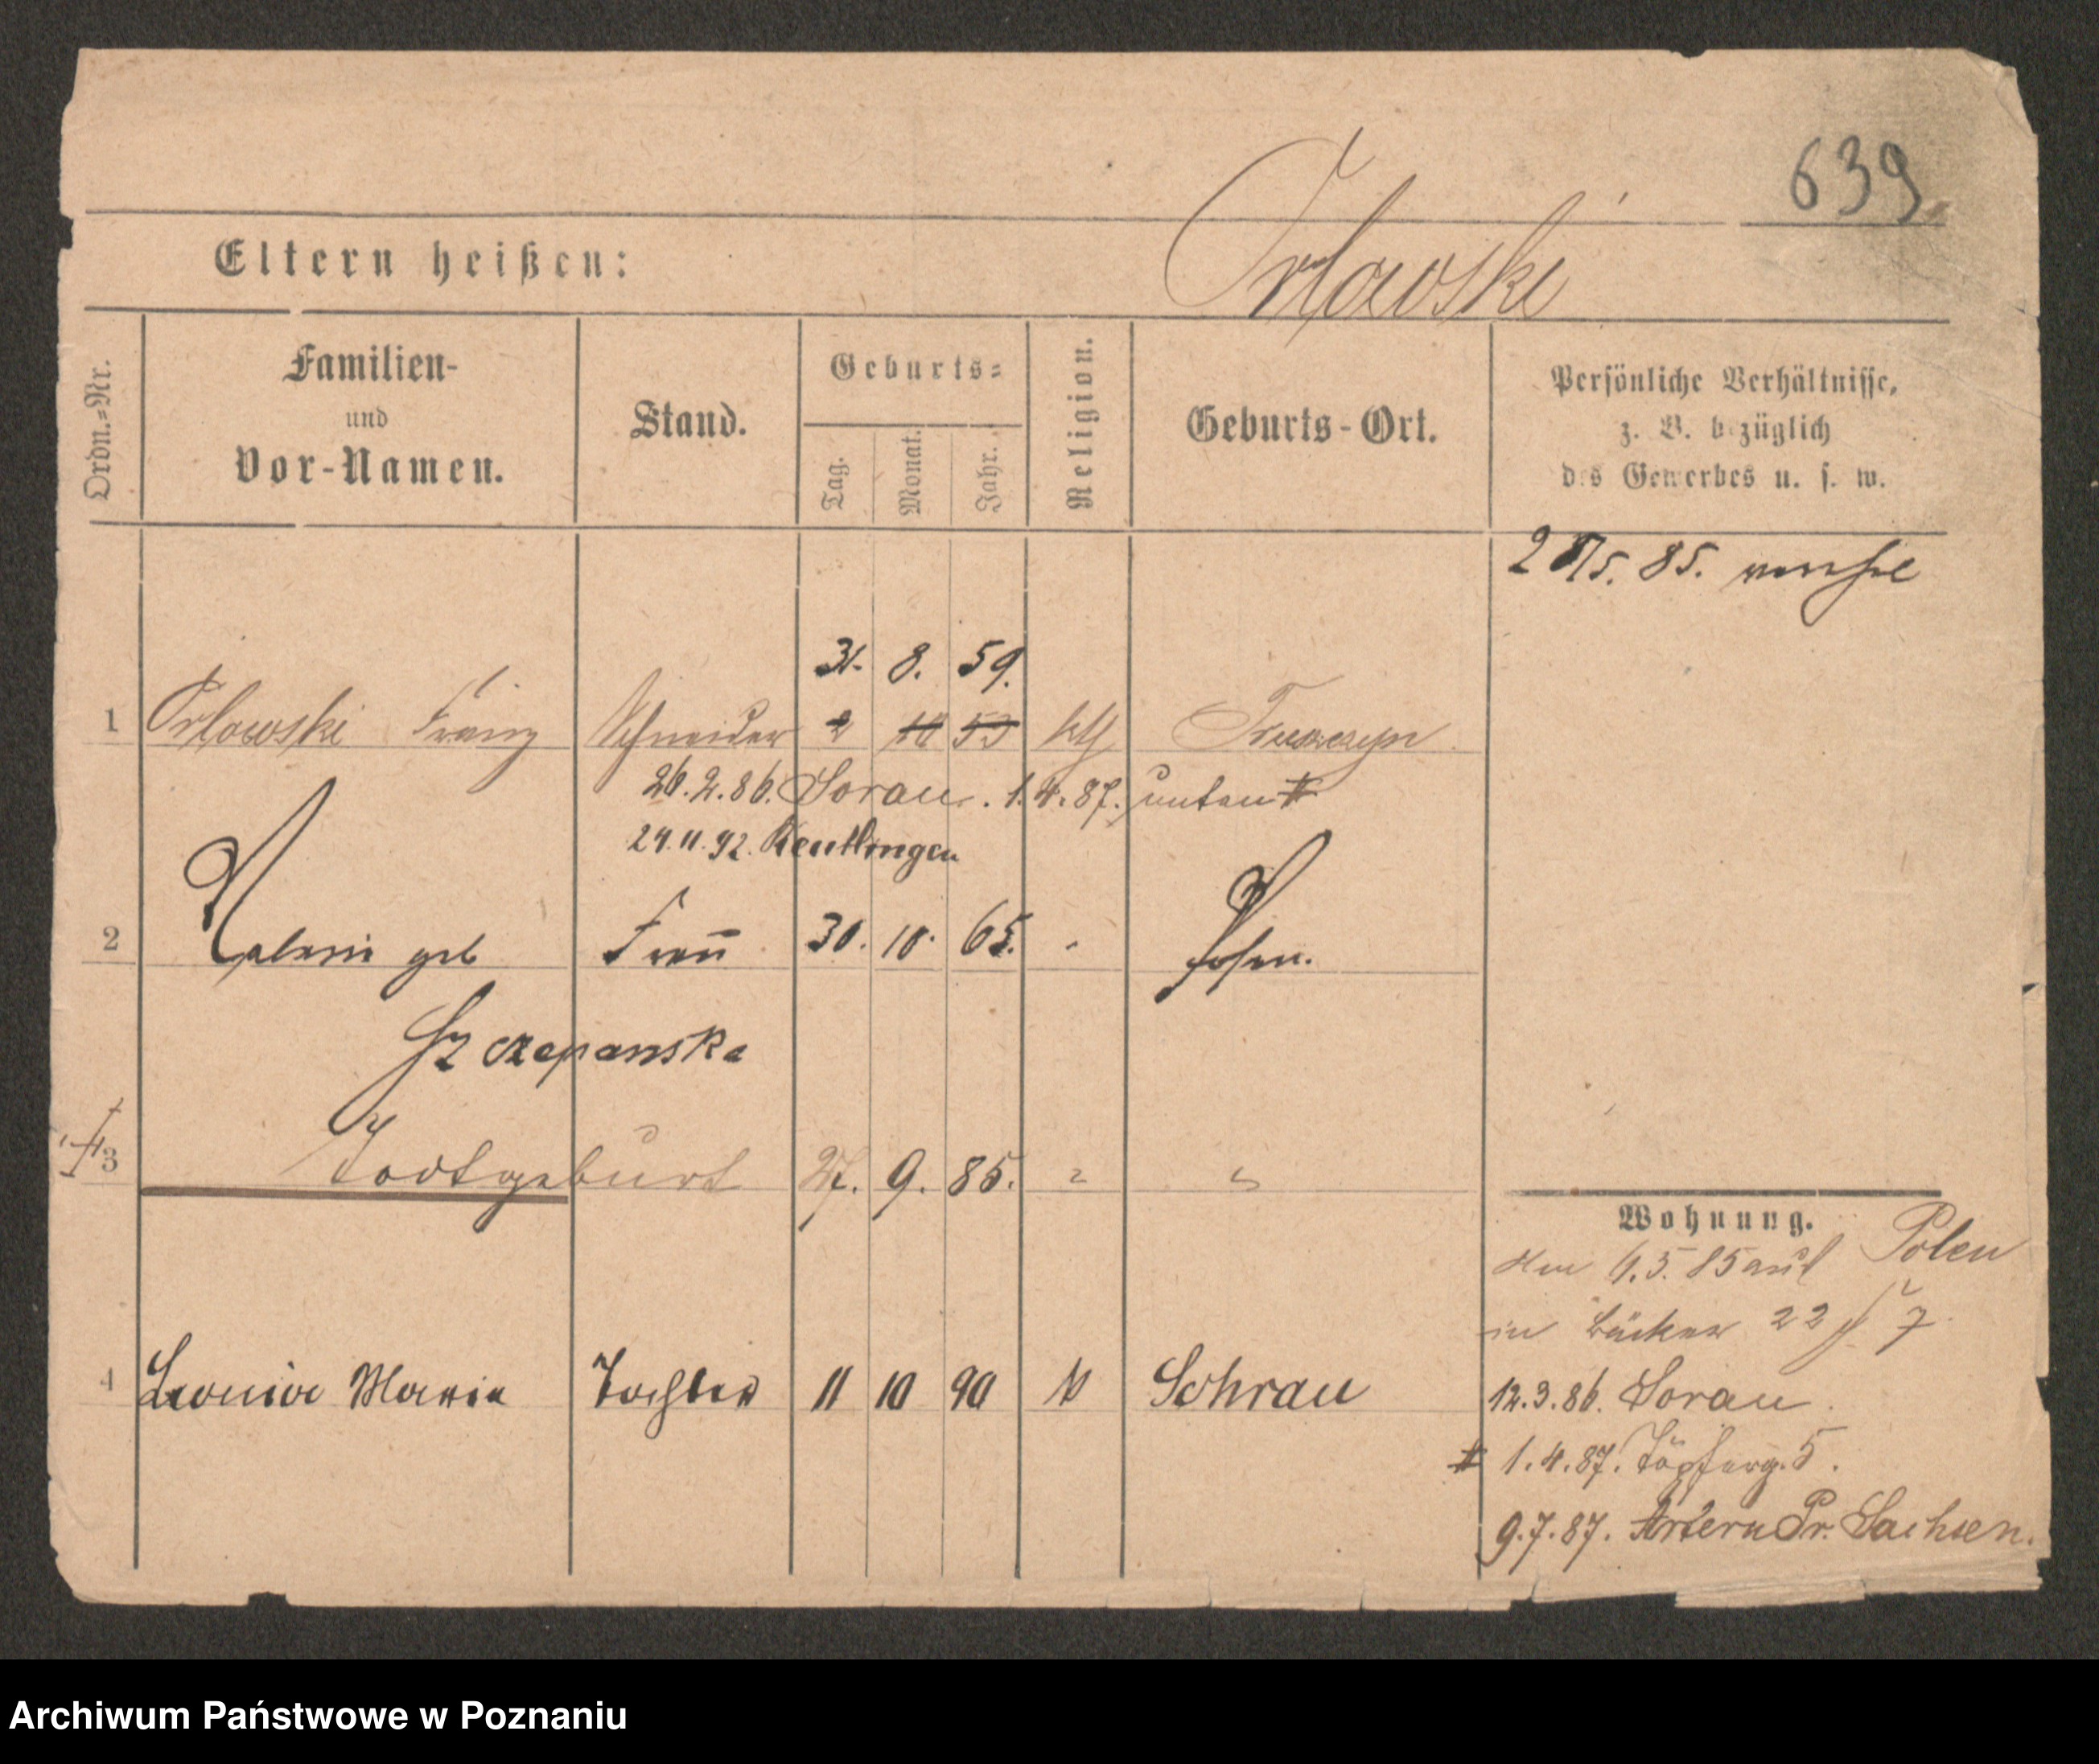 639
Eltern heißen:
Orlowski
Ordn.=Nr.
Familien-
und
Vor-Namen.
Stand.
Geburts=
Tag.
Monat.
Jahr.
Religion.
Geburts-Ort.
Persönliche Verhältnisse,
z. B. bezüglich
des Gewerbes u. s. w.
28/5. 85.
31. 8. 59.
1 Orlowski Franz Schneider 2 10 53 kth
26.2.86. Sorau. 1.4.87. unten #
24.11.92. Reutlingen
2 Valerie geb Frau 30. 10. 65. Posen.
Szczepanska
3 Todtgeburt 27. 9. 85.
Wohnung.
Am 6.5.85 aus Polen
in Bäcker 22 7
4 Leonia Maria Tochter 11 10 90 k Sohrau
12.3.86. Sorau.
# 1.4.87. Töpferg. 5.
9.7.87. Artern Pr. Sachsen.
Archiwum Państwowe w Poznaniu